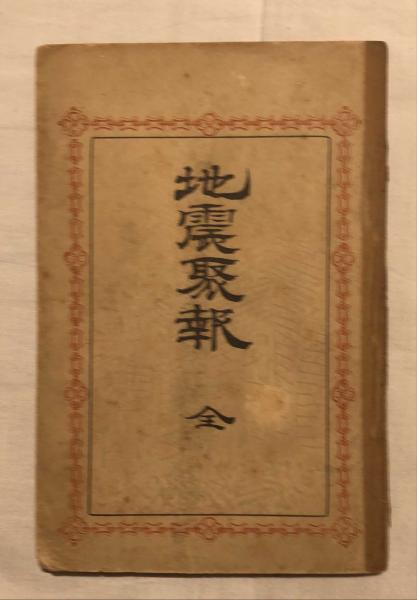 地震聚報
全